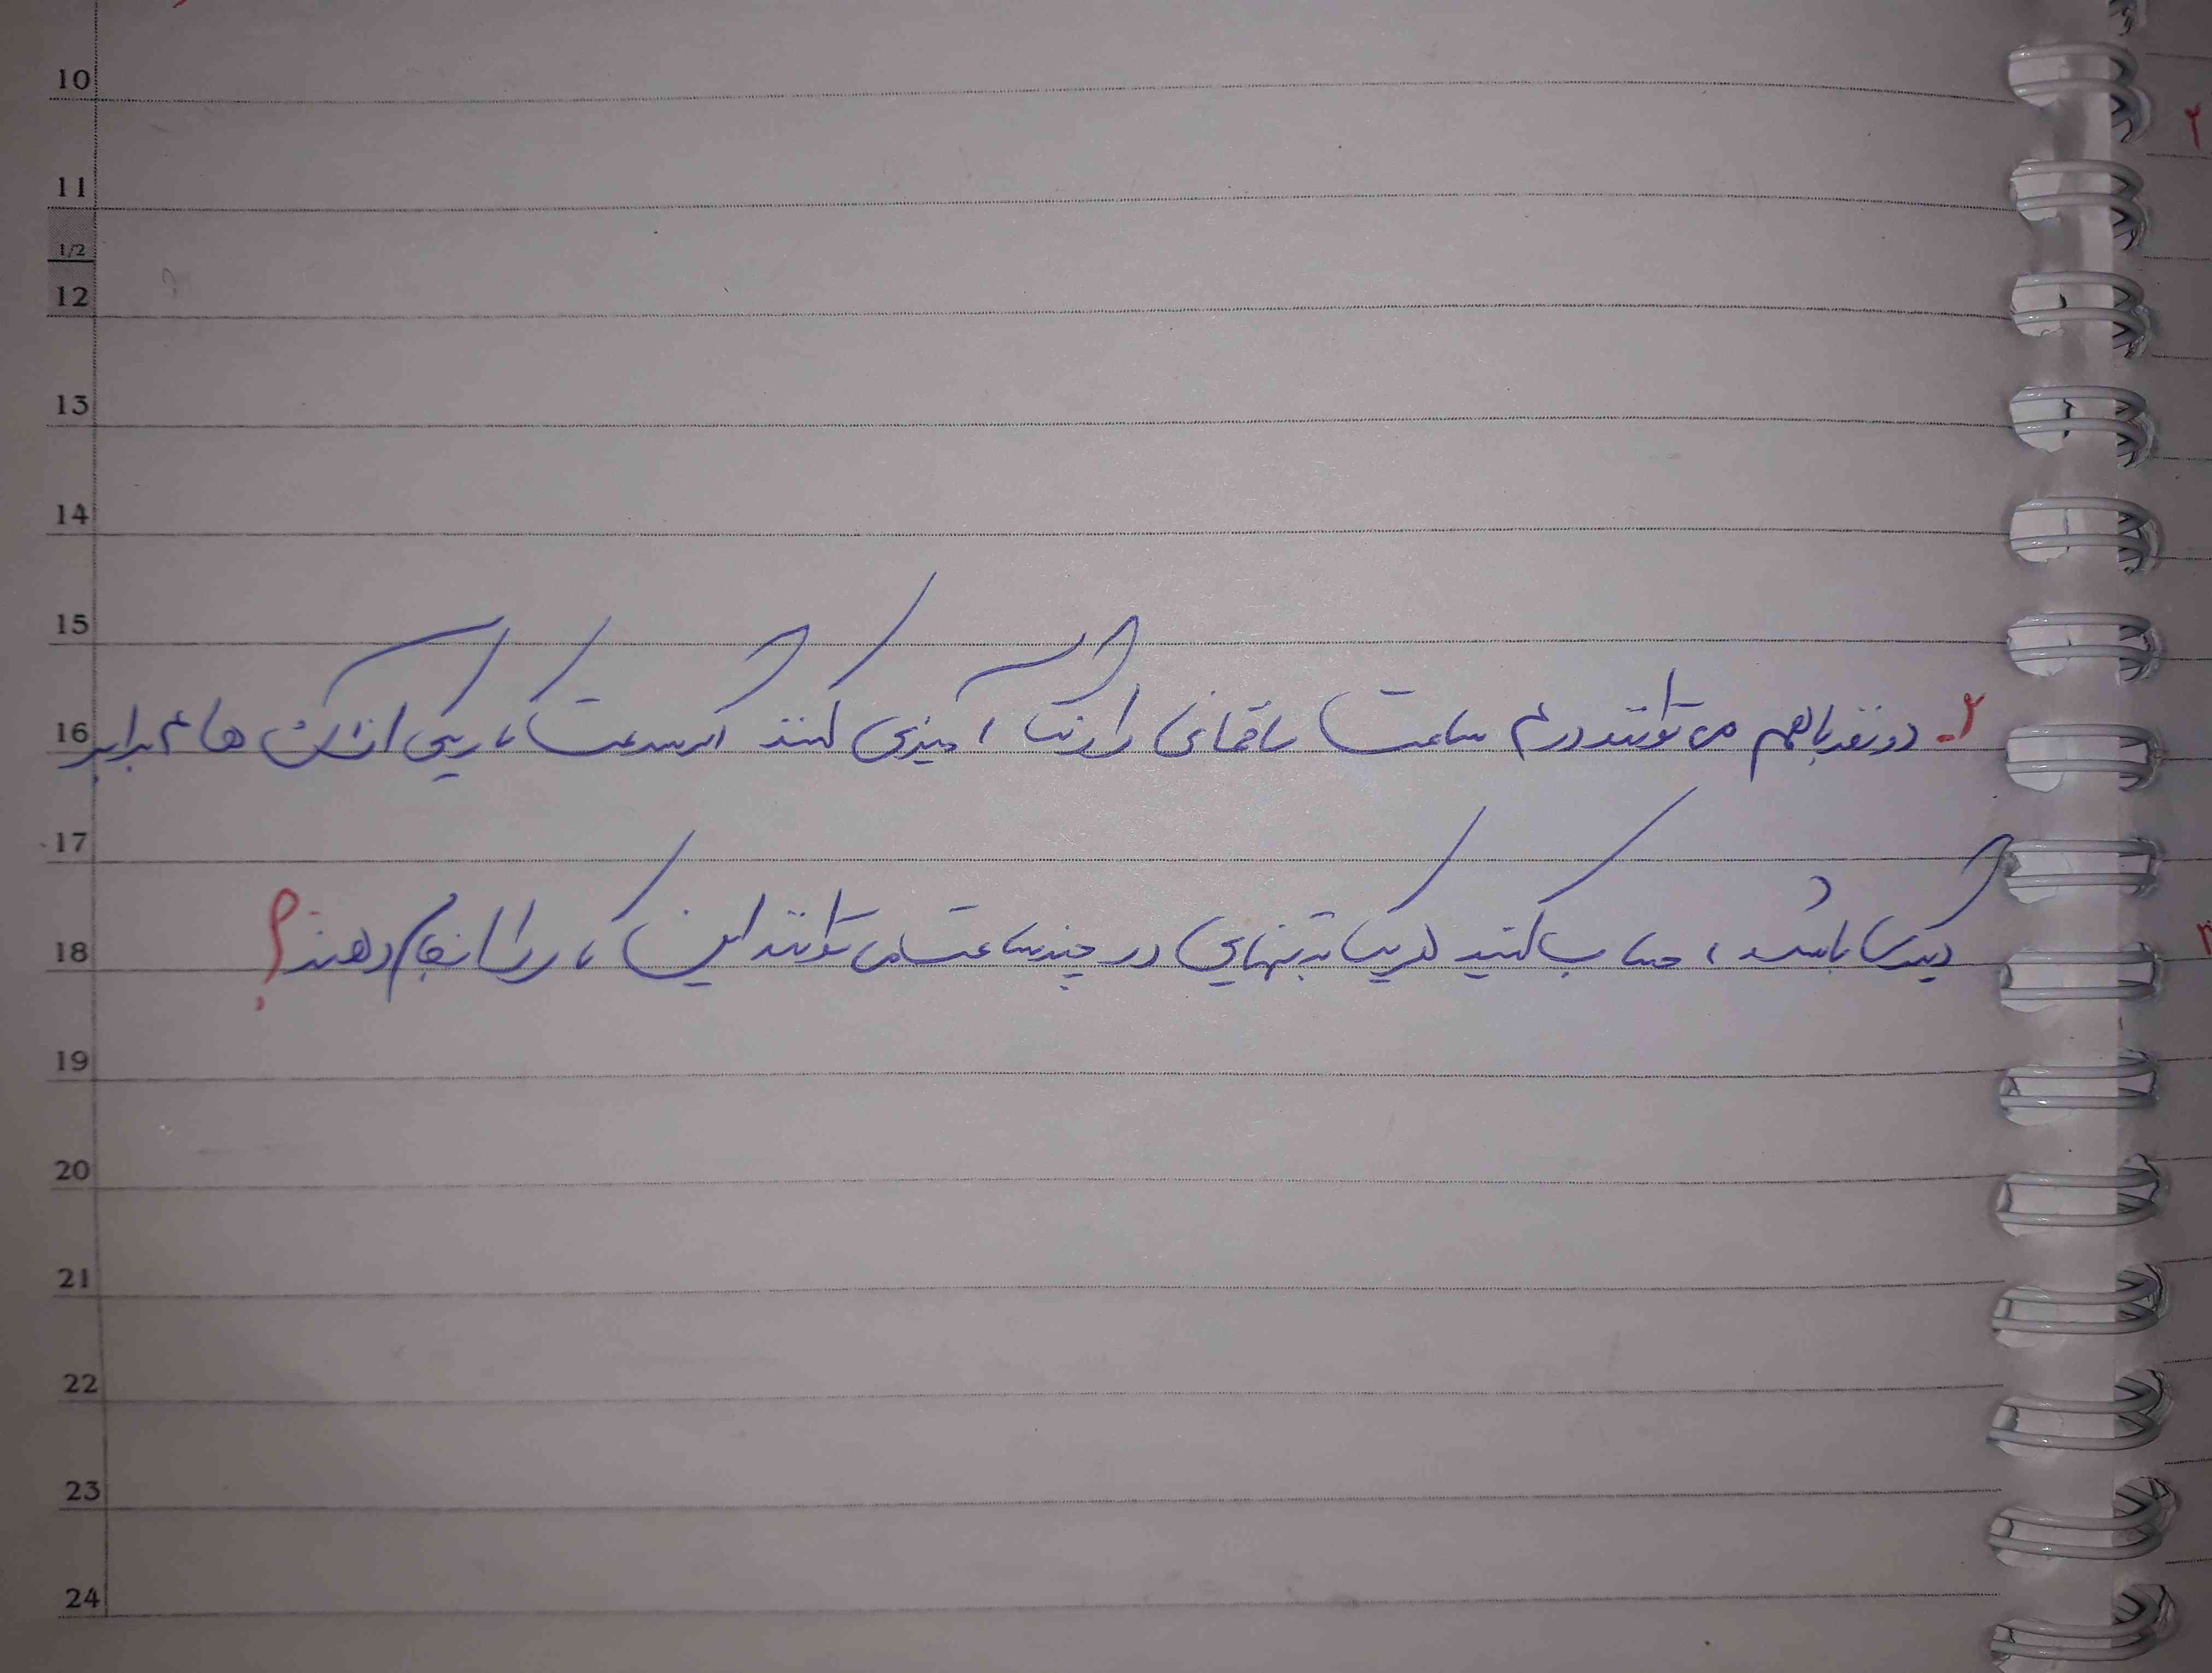 10
11
1/2
12
13
14
15
۲- دو نفر با هم می توانند در ۴ ساعت ساختمانی را رنگ آمیزی کنند اگر سرعت کار یکی از آن ها ۲ برابر
16
17
دیگری باشد، حساب کنید هر یک به تنهایی در چند ساعت می توانند این کار را انجام دهند؟
18
19
20
21
22
23
24